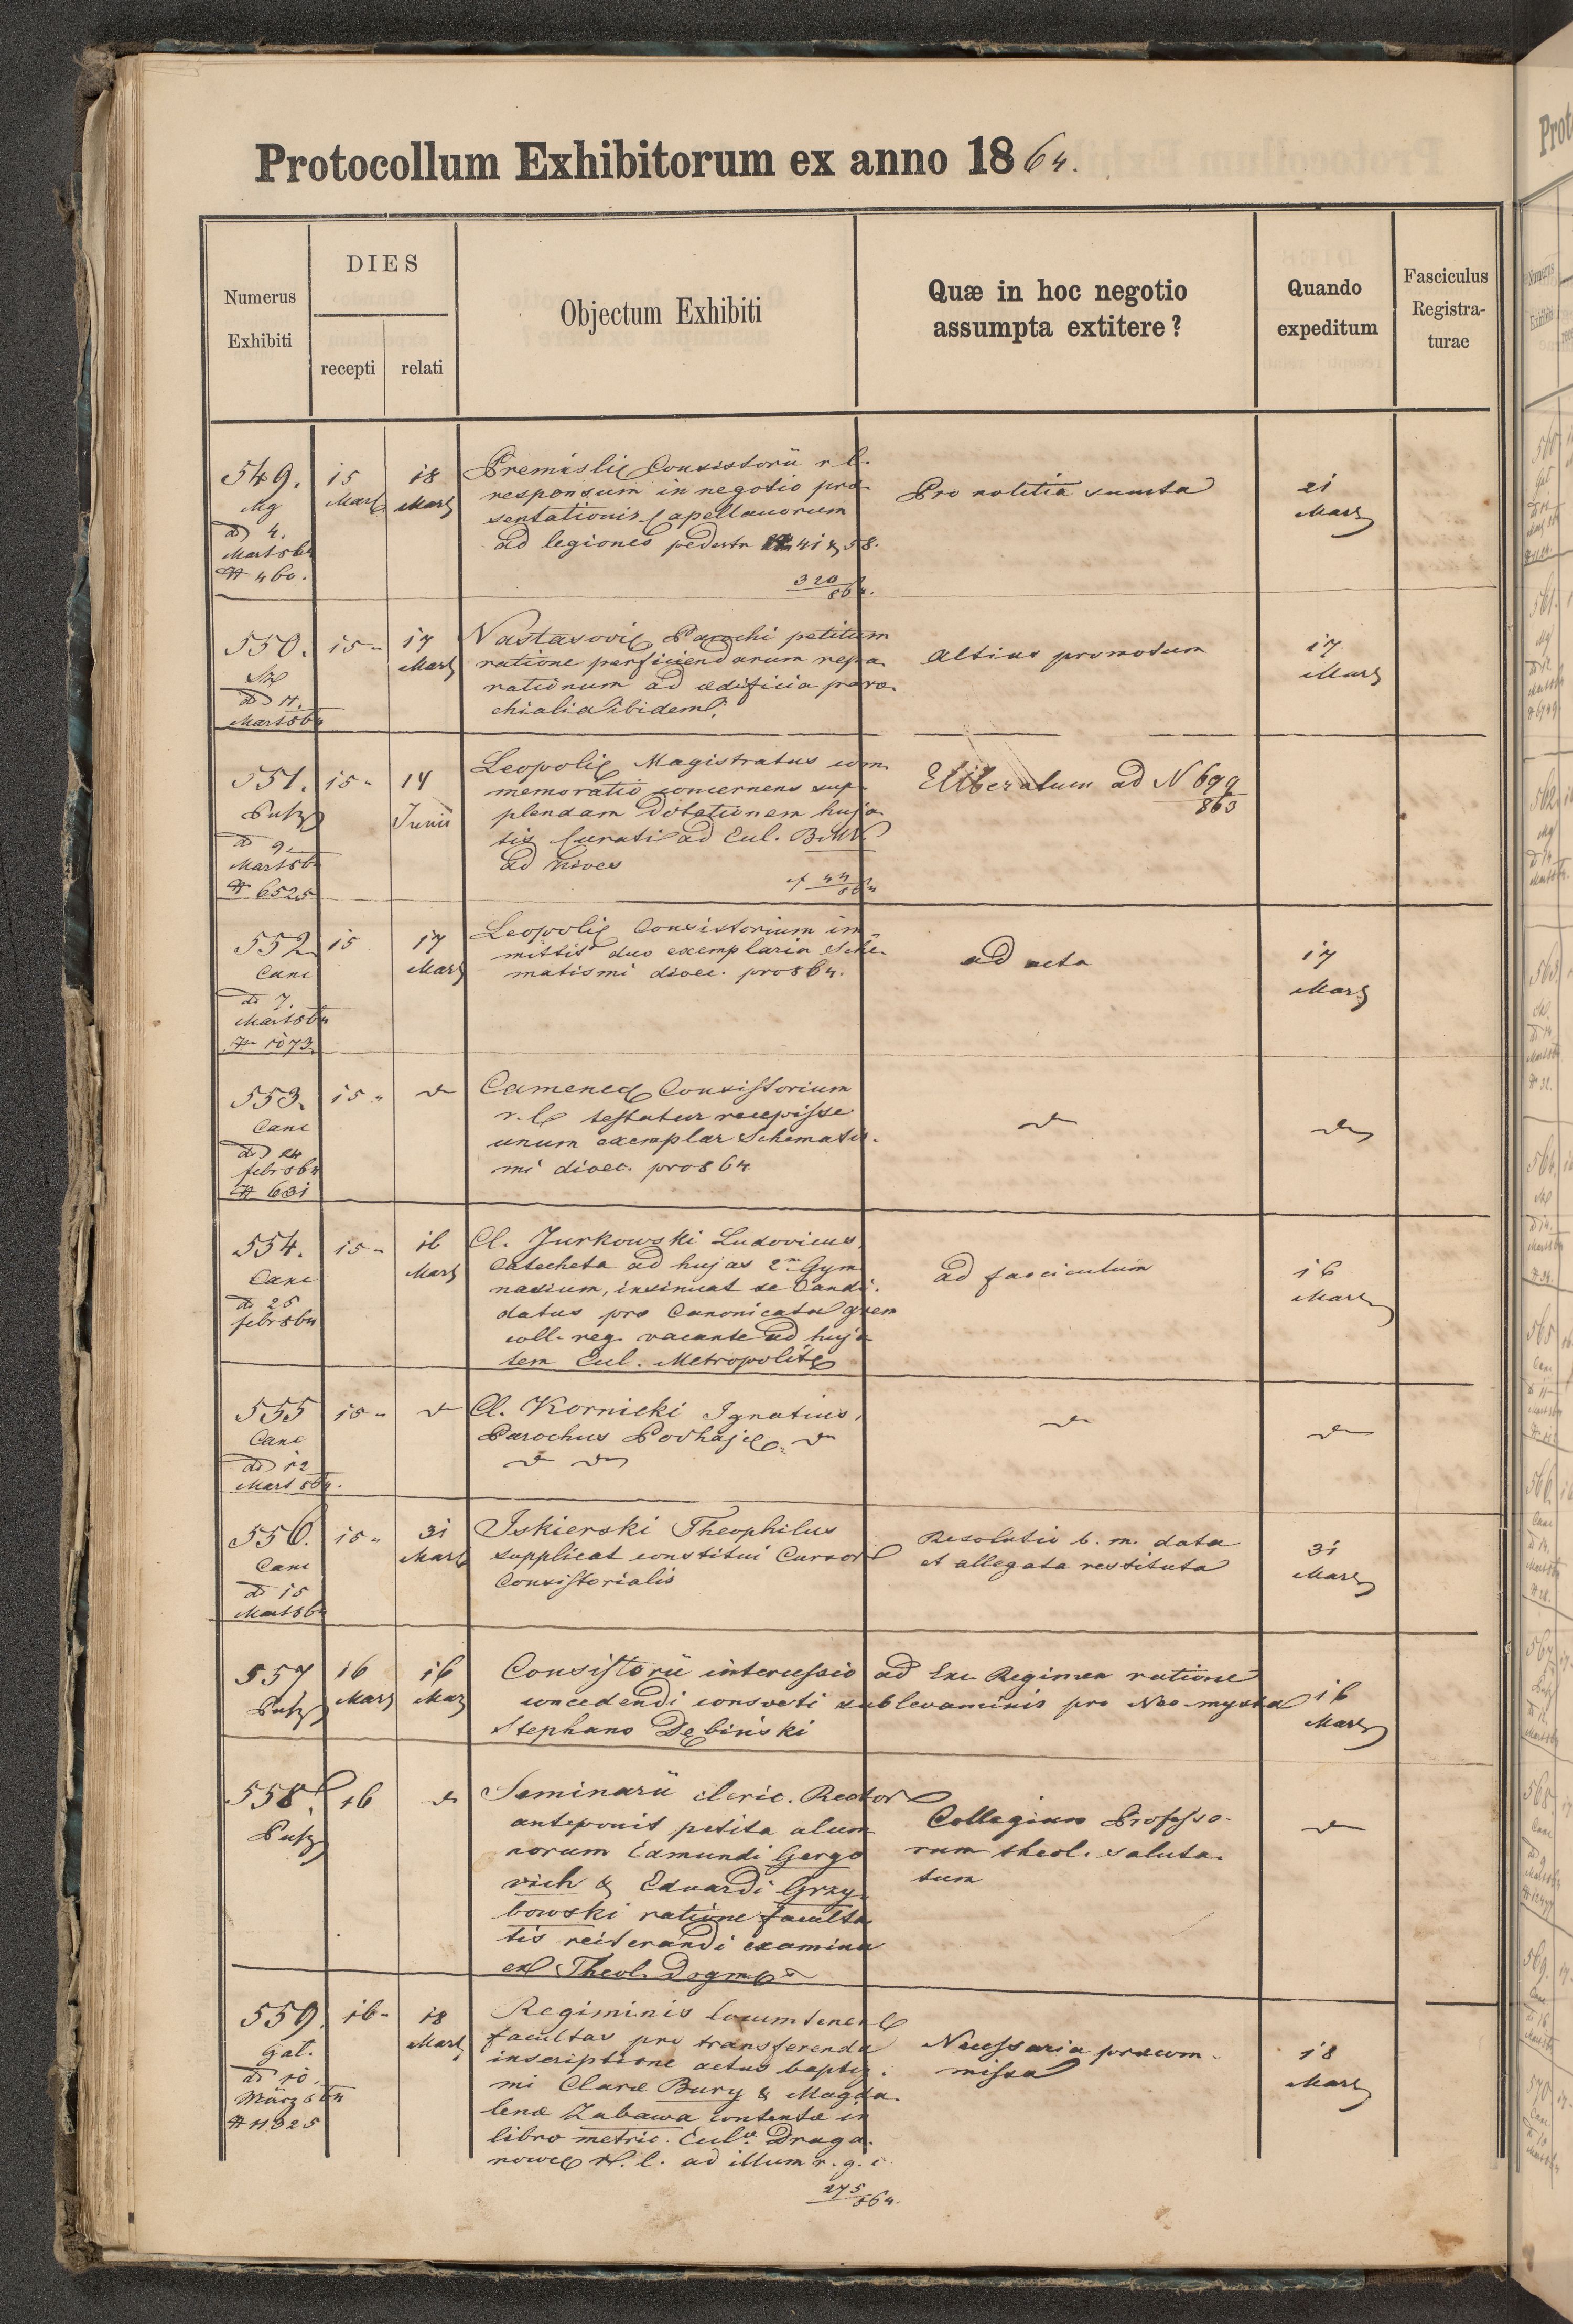 Protocollum Exhibitorum ex anno 1864.
Numerus
Exhibiti
DIES
recepti
relati
Objectum Exhibiti
Quæ in hoc negotio
assumpta extitere?
Quando
expeditum
Fasciculus
Registra-
turae
549.
Mg
dd 4.
Mart 864
# 460.
15
Mart
18
Mart
responsum in negotio præ-
sentationis Capellanorum
ad legiones pedestr 41 & 58.
320
864.
Pro notitia sumta
21
Mart
550.
dd 11.
Mart 864
15 "
17
Mart
Parochi petitum
ratione perficiendarum repa-
rationum ad ædificia paro-
chialia ibidem.
Altius promotum
17.
Mart
551.
dd 9.
Mart 864
# 6525
15 "
14
Junii
Magistratus com-
memoratio concernens sup-
plendam Dotationem huja-
tis Curati ad Eccl. BMV.
ad nives
44
864
Eliberatum ad N 699
863
552
Canc
dd 7.
Mart 864
# 1073.
15
17
Mart
Consistorium im-
mittit duo exemplaria Sche-
matismi dioec. pro 864.
ad acta
17
Mart
553.
Canc
dd 24
febr 864
# 631
15 "
Consistorium
testatur recepisse
unum exemplar Schematis-
mi dioec. pro 864
554.
Canc
dd 25
febr 864
15 "
16
Mart
Cl. Jurkowski Ludovicus,
Catecheta ad hujas 2m Gym-
nasium, insinuat se Candi-
datus pro Canonicatu grem
coll. reg. vacante ad huja-
tem Eccl. Metropolit
ad fasciculum
16
Mart
555
Canc
dd 12
Mart 864.
15 "
Cl. Kornicki Ignatius,
Parochus
556.
Canc
dd 15
Mart 864
15 "
31
Mart
Iskierski Theophilus
supplicat constitui Cursor
Consistorialis
Resolutio b. m. data
et allegata restituta
31
Mart
557
16
Mart
16
Mart
Consistorii intercessio ad Exc. Regimen ratione
concedendi consveti sublevaminis pro Neo-mysta
Stephano Dębiński
16
Mart
558.
16
Seminarii cleric. Rector
anteponit petita alum-
norum Edmundi Gergo-
vich & Eduardi Grzy-
bowski ratione faculta-
tis reiterandi examina
ex Theol. Dogm
Collegium Professo-
rum theol. saluta-
tum
559.
Gal.
dd 10.
März 864
# 11325
16 "
18
Mart
Regiminis locumtenent
facultas pro transferenda
inscriptione actus baptiz-
mi Claræ Bury & Magda-
lenæ Zabawa contentæ in
libro metric. Eccl. Draga-
ad illum r. g. c.
275
864.
Necessaria præcom-
missa
18
Mart